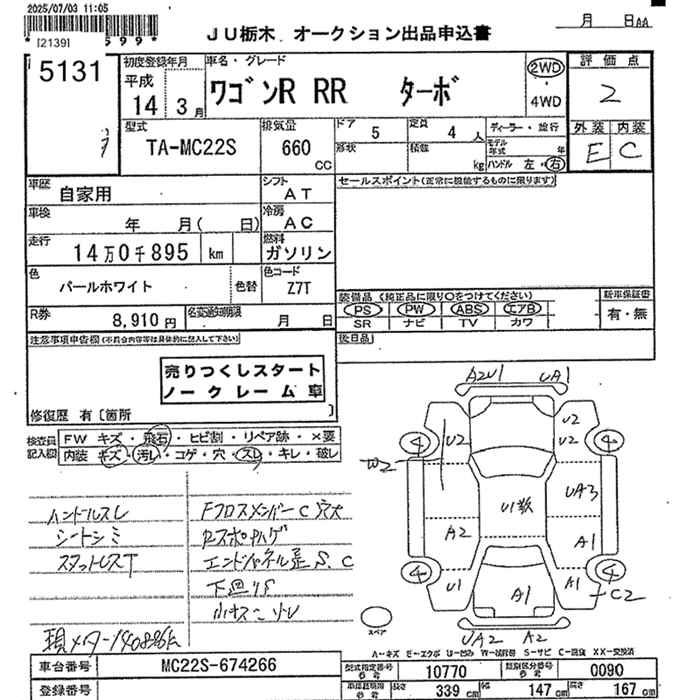 2025/07/03 11:05
*[2139]
599*
月 日AA
JU栃木 オークション出品申込書
5131
初度登録年月
平成
14
3月
車名・グレード
ワゴンR RR ターボ
2WD
・
4WD
評価点
2
外装 内装
E C
型式
TA-MC22S
排気量
660
CC
ドア 5
定員 4 人
ディーラー・並行
形状
積載 kg
モデル年式 年
ハンドル 左・右
車歴
自家用
シフト
AT
セールスポイント(正常に機能するものに限ります)
車検
年 月( 日)
冷房
AC
走行
14万0千895 km
燃料
ガソリン
色
パールホワイト
色替
色コード
Z7T
装備品 (純正品に限り○をつけてください)
新車保証書
PS PW ABS エアB
SR ナビ TV カワ
有・無
R券
8,910円
名変通知期限
月 日
注意事項申告欄(不具合内容等は具体的に記入して下さい)
後日品
売りつくしスタート
ノークレーム車
修復歴 有〔箇所 〕
検査員記入欄
FW キズ・飛石・ヒビ割・リペア跡・×要
内装 キズ・汚レ・コゲ・穴・スレ・キレ・破レ
ハンドルスレ
シートシミ
スタットレスT
FクロスメンバーC穴大
Rスポ
エンドパネル是S、C
下廻りS
現メーター140896k
A2U1
UA1
U2
U2
U2
W2
4
4
U1数
UA3
A2
A1
4
4
U1
A1
A1
C2
UA2
A2
スペア
A-キズ E-エクボ U-凹み W-補修跡 S-サビ C-腐食 XX-交換済
車台番号
MC22S-674266
型式指定番号
10770
類別区分番号
0090
登録番号
長さ
339 cm
幅
147 cm
高さ
167 cm